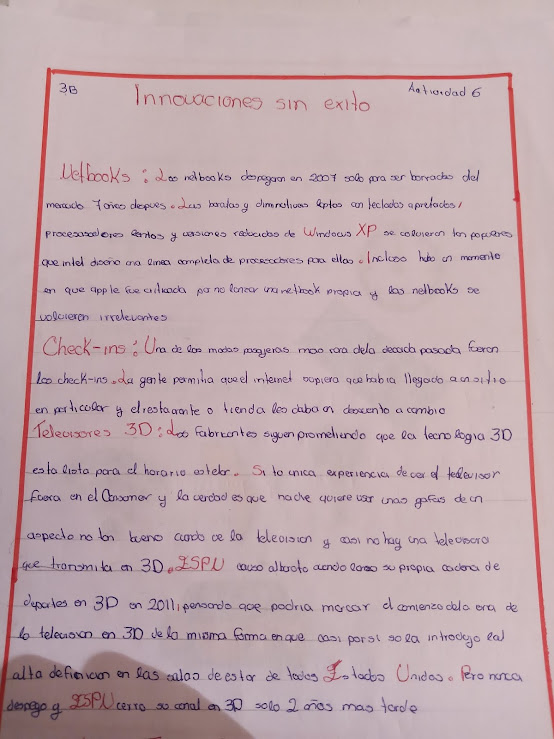 3B
Actividad 6
Innovaciones sin exito
Netbooks : Las netbooks despegaron en 2007 solo para ser borradas del
mercado 7 años despues. Las baratas y diminutivas laptos con teclados apretados,
procesasadores lentos y versiones reducidas de Windows XP se volvieron tan populares
que intel diseño una linea completa de procesadores para ellas. Incluso hubo un momento
en que apple fue criticada por no lanzar una netbook propia y las netbooks se
volvieron irrelevantes
Check-ins : Una de las modas pasajeras mas rara dela decada pasada fueron
los check-ins. La gente permitia que el internet supiera que habia llegado a un sitio
en particular y el restaurante o tienda les daba un descuento a cambio
Televisores 3D : Los fabricantes siguen prometiendo que la tecnologia 3D
esta lista para el horario estelar. Si tu unica experiencia de ver el televisor
fuera en el Consomer y la verdad es que nadie quiere usar unas gafas de un
aspecto no tan bueno cuando ve la television y casi no hay una televisora
que transmita en 3D. ESPN causo alboroto cuando lanzo su propia cadena de
deportes en 3D en 2011, pensando que podria marcar el comienzo dela era de
la television en 3D de la misma forma en que casi por si sola introdujo la
alta definicion en las salas de estar de todos Estados Unidos. Pero nunca
despego y ESPN cerro su canal en 3D solo 2 años mas tarde